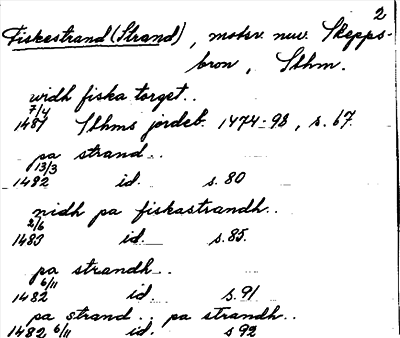 2
Fiskestrand (Strand), motsv. nuv. Skepps-
bron, Sthm.
widh fiska torget..
7/4
1481 Sthms jordeb. 1474-98, s. 67.
pa strand..
13/3
1482 id. s. 80
nidh pa fiskastrandh..
2/6
1483 id. s. 85.
pa strandh..
6/11
1482 id. s. 91
pa strand.. pa strandh..
1482 6/11 id. s 92